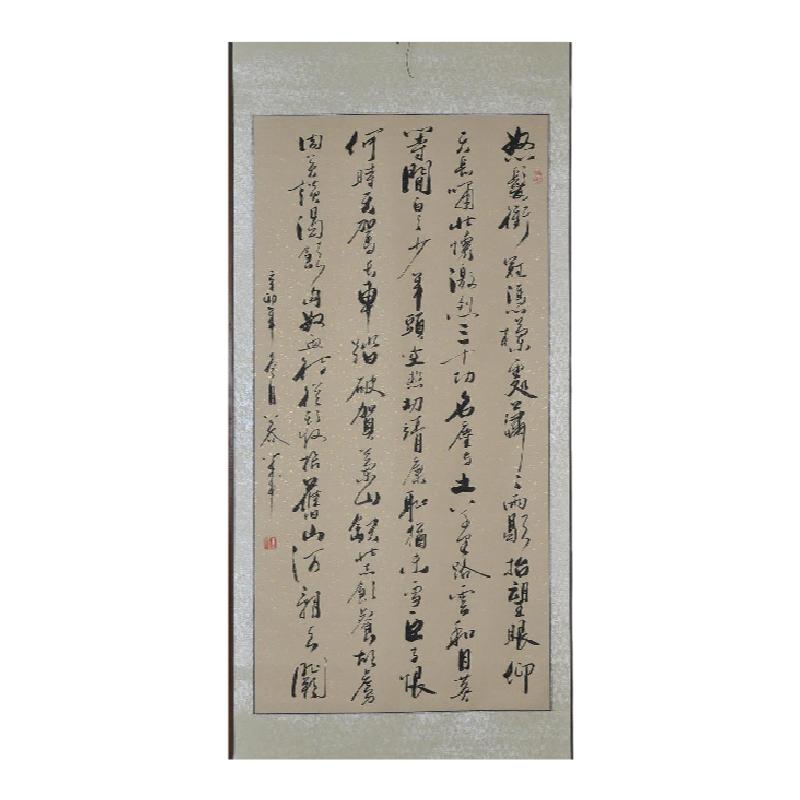 怒髮衝冠憑欄處瀟瀟雨歇抬望眼仰
天長嘯壯懷激烈三十功名塵與土八千里路雲和月莫
等閒白了少年頭空悲切靖康恥猶未雪臣子恨
何時滅駕長車踏破賀蘭山缺壯志飢餐胡虜
肉笑談渴飲匈奴血待從頭收拾舊山河朝天闕
辛卯年春月